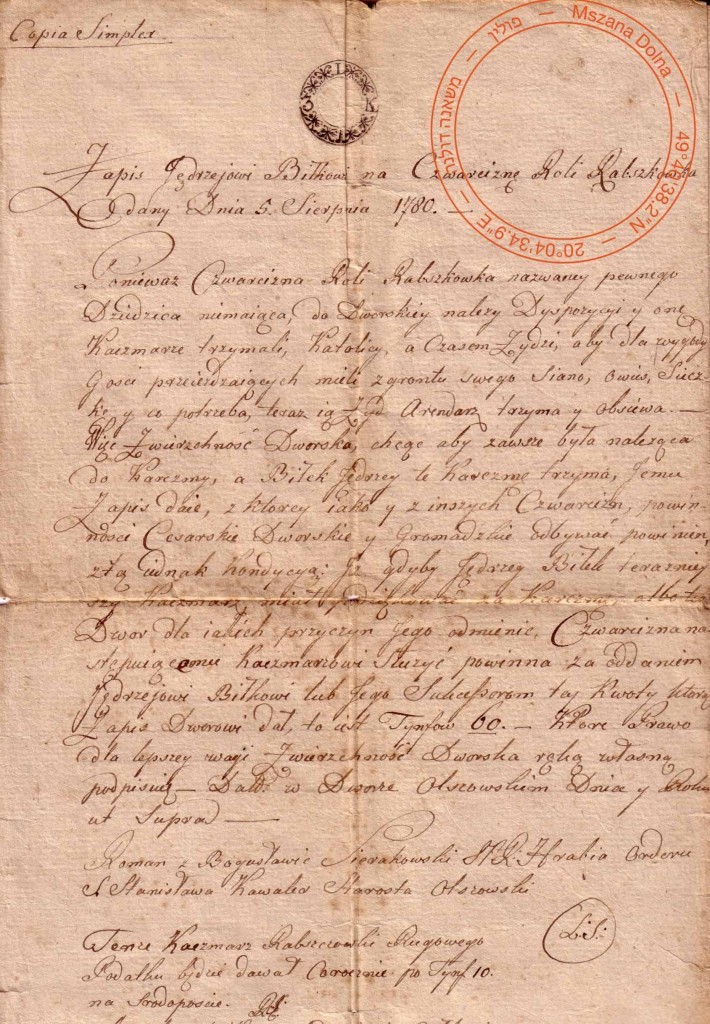 Copia Simplex
I K
Mszana Dolna — 49°40'38.2"N — 20°04'34.9"E — משאנה דולנה — פולין —
Zapis Jędrzejowi Bitkowi na Czwarciznę Roli Rabszkowka
dany Dnia 5. Sierpnia 1780. —
Poniewaz Czwarcizna Roli Rabszkowka nazwaney pewnego
Dziedzica niemaiąca, do Dworskiey nalezy Dyspozycyi y onę
Kaczmarze trzymali, Katolicy, a Czasem Zydzi, aby dla wygody
Gosci przeiezdzaiących mieli z gruntu swego Siano, owies, Siecz
kę y co potrzeba, teraz ią Arendarz trzyma y obsiewa. —
Więc Zwierzchność Dworska, chcąc aby zawsze była naleząca
do Karczmy, a Bitek Jędrzey tę Karczmę trzyma, Jemu
Zapis daie, z ktorey iako y z inszych Czwarcizn, powin-
nosci Cesarskie Dworskie y Gromadzkie odbywać powinien,
z tą iednak Kondycyą: Iz gdyby Jędrzey Bitek terazniey
szy Kaczmarz miał podziękować za Karczmę, albo tez
Dwor dla iakich przyczyn Jego odmienić, Czwarcizna na-
stępuiącemu Kaczmarzowi Słuzyć powinna za oddaniem
Jędrzejowi Bitkowi lub Jego Sukcessorom tej Kwoty ktorą
Zapis Dworowi dał, to iest Tynfow 60. — Ktore Prawo
dla lepszey wagi Zwierzchność Dworska ręką własną
podpisuię — Datt w Dworze Olszowskim Dnia y Roku
ut Supra —
Roman z Bogusławic Sierakowski Hrabia Orderu
S. Stanisława Kawaler Starosta Olszowski
L:S:
Tenze Kaczmarz Rabszczowski Rugowego
Podatku będzie dawał Corocznie po Tynf 10.
na Srodoposcie.